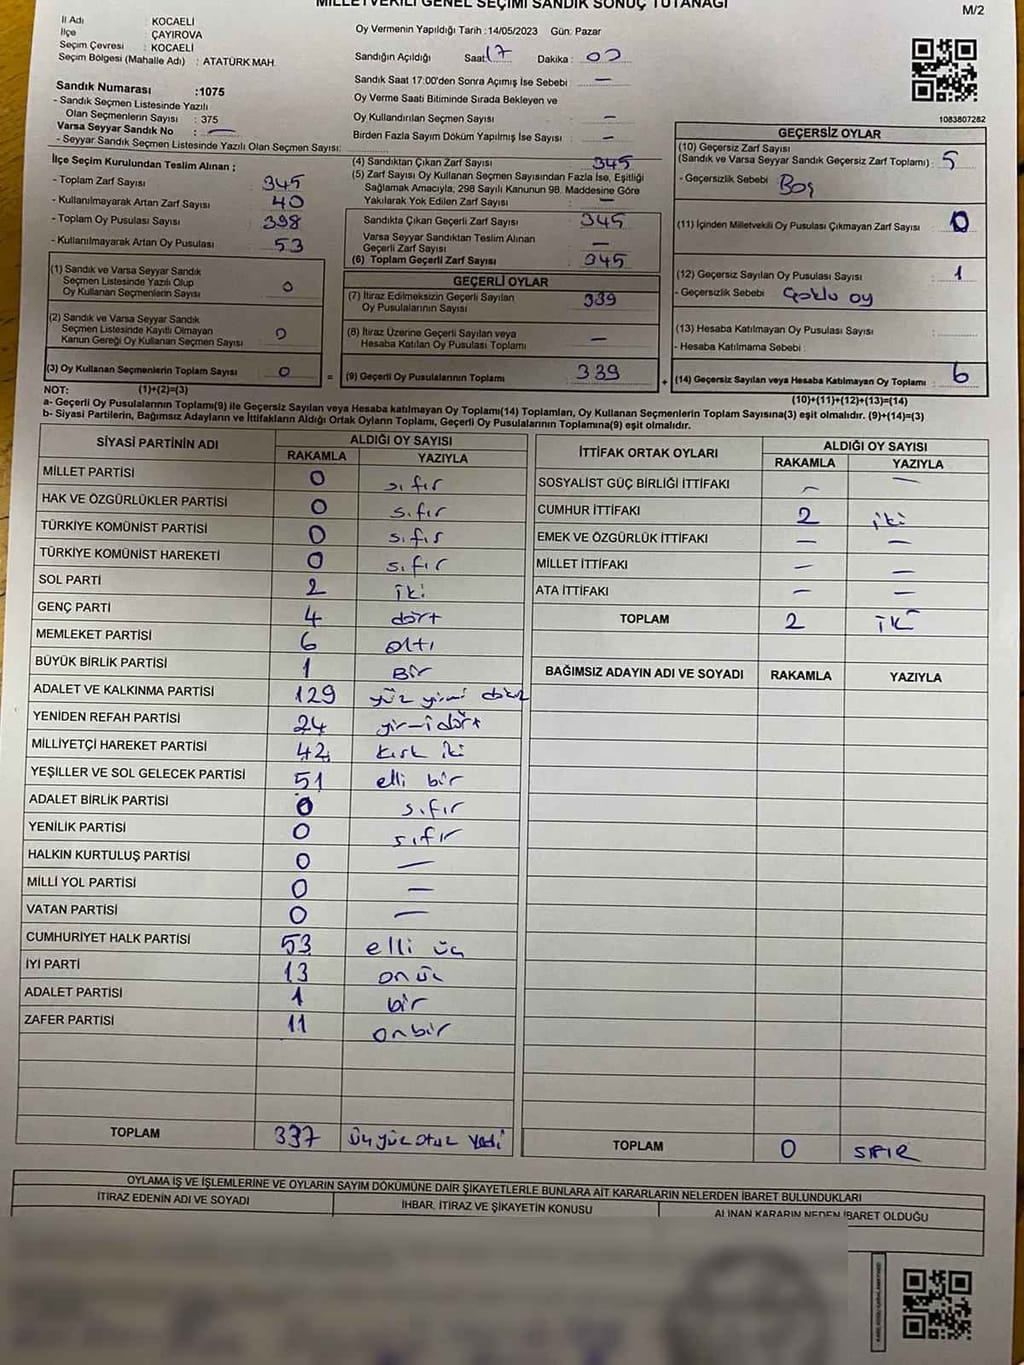 MİLLETVEKİLİ GENEL SEÇİMİ SANDIK SONUÇ TUTANAĞI
M/2
İl Adı : KOCAELİ
İlçe : ÇAYIROVA
Seçim Çevresi : KOCAELİ
Seçim Bölgesi (Mahalle Adı) : ATATÜRK MAH.
Sandık Numarası :1075
- Sandık Seçmen Listesinde Yazılı
Olan Seçmenlerin Sayısı : 375
Varsa Seyyar Sandık No : —
- Seyyar Sandık Seçmen Listesinde Yazılı Olan Seçmen Sayısı:
Oy Vermenin Yapıldığı Tarih :14/05/2023 Gün: Pazar
Sandığın Açıldığı Saat: 17 Dakika :
Sandık Saat 17:00'den Sonra Açımış İse Sebebi : —
Oy Verme Saati Bitiminde Sırada Bekleyen ve
Oy Kullandırılan Seçmen Sayısı : —
Birden Fazla Sayım Döküm Yapılmış İse Sayısı : —
1083807282
İlçe Seçim Kurulundan Teslim Alınan ;
- Toplam Zarf Sayısı 345
- Kullanılmayarak Artan Zarf Sayısı 40
- Toplam Oy Pusulası Sayısı 398
- Kullanılmayarak Artan Oy Pusulası 53
(1) Sandık ve Varsa Seyyar Sandık
Seçmen Listesinde Yazılı Olup
Oy Kullanan Seçmenlerin Sayısı 0
(2) Sandık ve Varsa Seyyar Sandık
Seçmen Listesinde Kayıtlı Olmayan
Kanun Gereği Oy Kullanan Seçmen Sayısı 0
(3) Oy Kullanan Seçmenlerin Toplam Sayısı 0 =
(4) Sandıktan Çıkan Zarf Sayısı 345
(5) Zarf Sayısı Oy Kullanan Seçmen Sayısından Fazla İse, Eşitliği
Sağlamak Amacıyla, 298 Sayılı Kanunun 98. Maddesine Göre
Yakılarak Yok Edilen Zarf Sayısı : —
Sandıkta Çıkan Geçerli Zarf Sayısı 345
Varsa Seyyar Sandıktan Teslim Alınan
Geçerli Zarf Sayısı —
(6) Toplam Geçerli Zarf Sayısı 345
GEÇERLİ OYLAR
(7) İtiraz Edilmeksizin Geçerli Sayılan
Oy Pusulalarının Sayısı 339
(8) İtiraz Üzerine Geçerli Sayılan veya
Hesaba Katılan Oy Pusulası Toplamı —
(9) Geçerli Oy Pusulalarının Toplamı 339 +
GEÇERSİZ OYLAR
(10) Geçersiz Zarf Sayısı
(Sandık ve Varsa Seyyar Sandık Geçersiz Zarf Toplamı) : 5
- Geçersizlik Sebebi Boş
(11) İçinden Milletvekili Oy Pusulası Çıkmayan Zarf Sayısı : 0
(12) Geçersiz Sayılan Oy Pusulası Sayısı : 1
- Geçersizlik Sebebi Çoklu oy
(13) Hesaba Katılmayan Oy Pusulası Sayısı :
- Hesaba Katılmama Sebebi :
(14) Geçersiz Sayılan veya Hesaba Katılmayan Oy Toplamı : 6
NOT: (1)+(2)=(3)
(10)+(11)+(12)+(13)=(14)
a- Geçerli Oy Pusulalarının Toplamı(9) ile Geçersiz Sayılan veya Hesaba katılmayan Oy Toplamı(14) Toplamları, Oy Kullanan Seçmenlerin Toplam Sayısına(3) eşit olmalıdır. (9)+(14)=(3)
b- Siyasi Partilerin, Bağımsız Adayların ve İttifakların Aldığı Ortak Oyların Toplamı, Geçerli Oy Pusulalarının Toplamına(9) eşit olmalıdır.
SİYASİ PARTİNİN ADI ALDIĞI OY SAYISI
RAKAMLA YAZIYLA
MİLLET PARTİSİ 0 sıfır
HAK VE ÖZGÜRLÜKLER PARTİSİ 0 sıfır
TÜRKİYE KOMÜNİST PARTİSİ 0 sıfır
TÜRKİYE KOMÜNİST HAREKETİ 0 sıfır
SOL PARTİ 2 iki
GENÇ PARTİ 4 dört
MEMLEKET PARTİSİ 6 altı
BÜYÜK BİRLİK PARTİSİ 1 Bir
ADALET VE KALKINMA PARTİSİ 129 yüz yirmi dokuz
YENİDEN REFAH PARTİSİ 24 yirmi dört
MİLLİYETÇİ HAREKET PARTİSİ 42 kırk iki
YEŞİLLER VE SOL GELECEK PARTİSİ 51 elli bir
ADALET BİRLİK PARTİSİ 0 sıfır
YENİLİK PARTİSİ 0 sıfır
HALKIN KURTULUŞ PARTİSİ 0 —
MİLLİ YOL PARTİSİ 0 —
VATAN PARTİSİ 0 —
CUMHURİYET HALK PARTİSİ 53 elli üç
İYİ PARTİ 13 on üç
ADALET PARTİSİ 1 bir
ZAFER PARTİSİ 11 onbir
TOPLAM 337 üçyüz otuz yedi
İTTİFAK ORTAK OYLARI ALDIĞI OY SAYISI
RAKAMLA YAZIYLA
SOSYALİST GÜÇ BİRLİĞİ İTTİFAKI — —
CUMHUR İTTİFAKI 2 iki
EMEK VE ÖZGÜRLÜK İTTİFAKI — —
MİLLET İTTİFAKI — —
ATA İTTİFAKI — —
TOPLAM 2 iki
BAĞIMSIZ ADAYIN ADI VE SOYADI RAKAMLA YAZIYLA
TOPLAM 0 SIFIR
OYLAMA İŞ VE İŞLEMLERİNE VE OYLARIN SAYIM DÖKÜMÜNE DAİR ŞİKAYETLERLE BUNLARA AİT KARARLARIN NELERDEN İBARET BULUNDUKLARI
İTİRAZ EDENİN ADI VE SOYADI İHBAR, İTİRAZ VE ŞİKAYETİN KONUSU ALINAN KARARIN NEDEN İBARET OLDUĞU